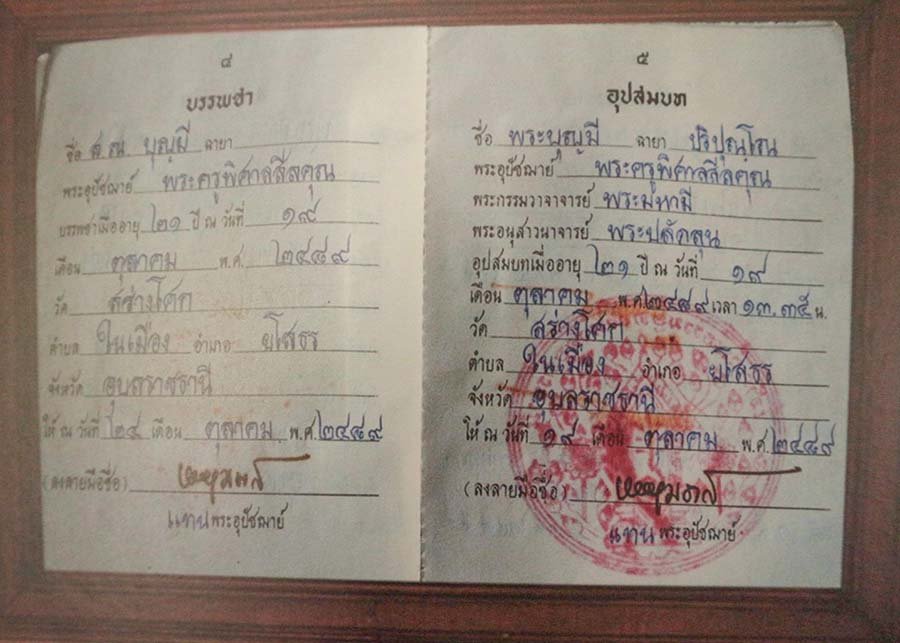 ๔
บรรพชา
ชื่อ ส.ณ. บุญมี ฉายา
พระอุปัชฌาย์ พระครูพิศาลสีลคุณ
บรรพชาเมื่ออายุ ๒๑ ปี ณ วันที่ ๑๙
เดือน ตุลาคม พ.ศ. ๒๔๘๙
วัด สร่างโศก
ตำบล ในเมือง อำเภอ ยโสธร
จังหวัด อุบลราชธานี
ให้ ณ วันที่ ๒๔ เดือน ตุลาคม พ.ศ. ๒๔๘๙
(ลงลายมือชื่อ)
แทน พระอุปัชฌาย์
๕
อุปสมบท
ชื่อ พระบุญมี ฉายา ปริปุณฺโณ
พระอุปัชฌาย์ พระครูพิศาลสีลคุณ
พระกรรมวาจาจารย์ พระมหามี
พระอนุสาวนาจารย์ พระปลัดลุน
อุปสมบทเมื่ออายุ ๒๑ ปี ณ วันที่ ๑๙
เดือน ตุลาคม พ.ศ. ๒๔๘๙ เวลา ๑๓.๓๕ น.
วัด สร่างโศก
ตำบล ในเมือง อำเภอ ยโสธร
จังหวัด อุบลราชธานี
ให้ ณ วันที่ ๑๙ เดือน ตุลาคม พ.ศ. ๒๔๘๙
(ลงลายมือชื่อ)
แทน พระอุปัชฌาย์